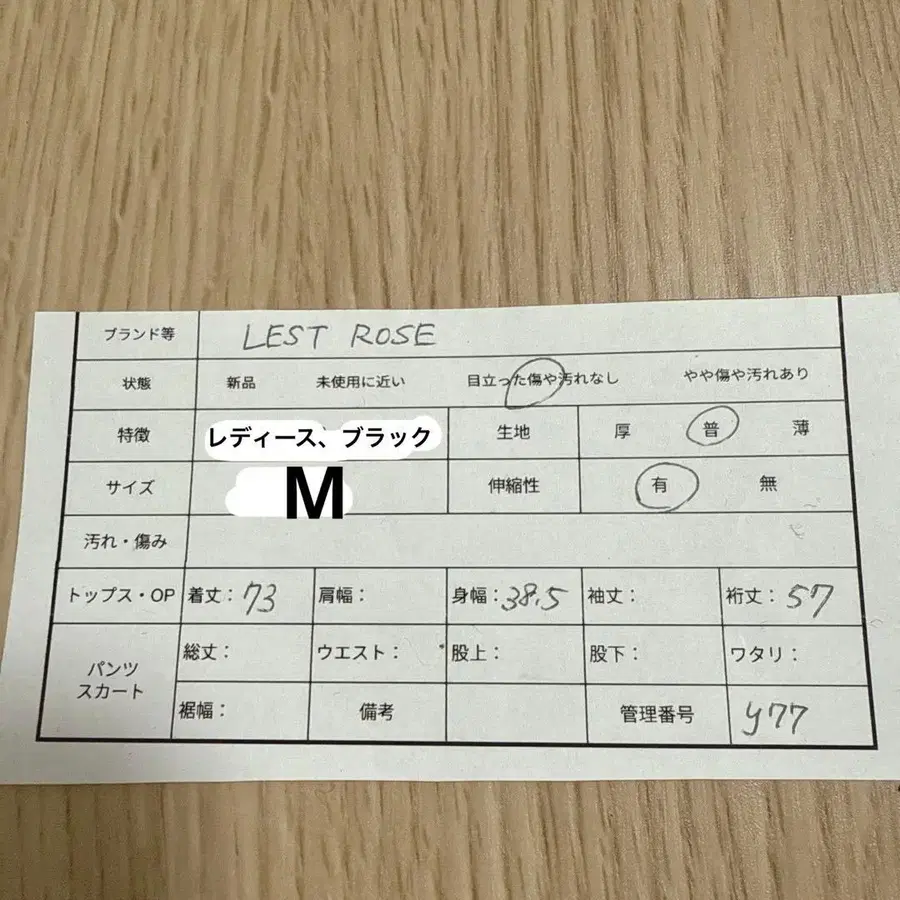 ブランド等 LEST ROSE
状態 新品 未使用に近い 目立った傷や汚れなし やや傷や汚れあり
特徴 レディース、ブラック 生地 厚 普 薄
サイズ M 伸縮性 有 無
汚れ・傷み
トップス・OP 着丈：73 肩幅： 身幅：38.5 袖丈： 裄丈：57
パンツ
スカート
総丈： ウエスト： 股上： 股下： ワタリ：
裾幅： 備考 管理番号 y77